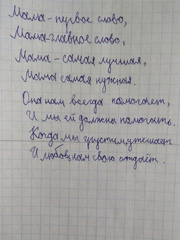 Мама-первое слово,
Мама-главное слово,
Мама-самая лучшая,
Мама самая нужная.
Она нам всегда помогает,
И мы ей должны помогать.
Когда мы грустим, утешает
И любовь нам свою отдаёт.